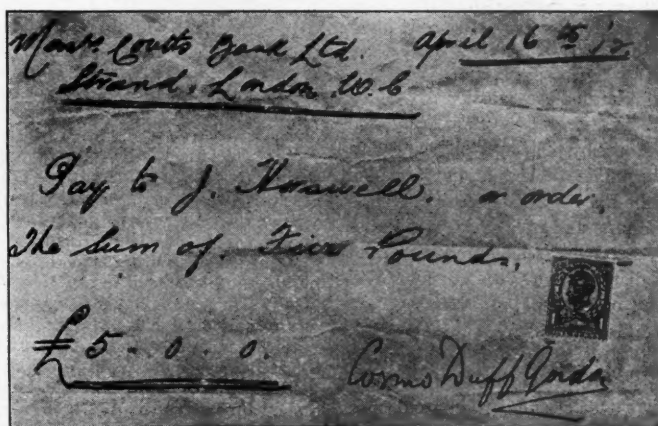 Messrs. Coutts Bank Ltd. April 16th '12
Strand, London. W.C
Pay to J. Horswell. or order.
The Sum of. Five Pounds.
£5 - 0. 0.
Cosmo Duff Gordon